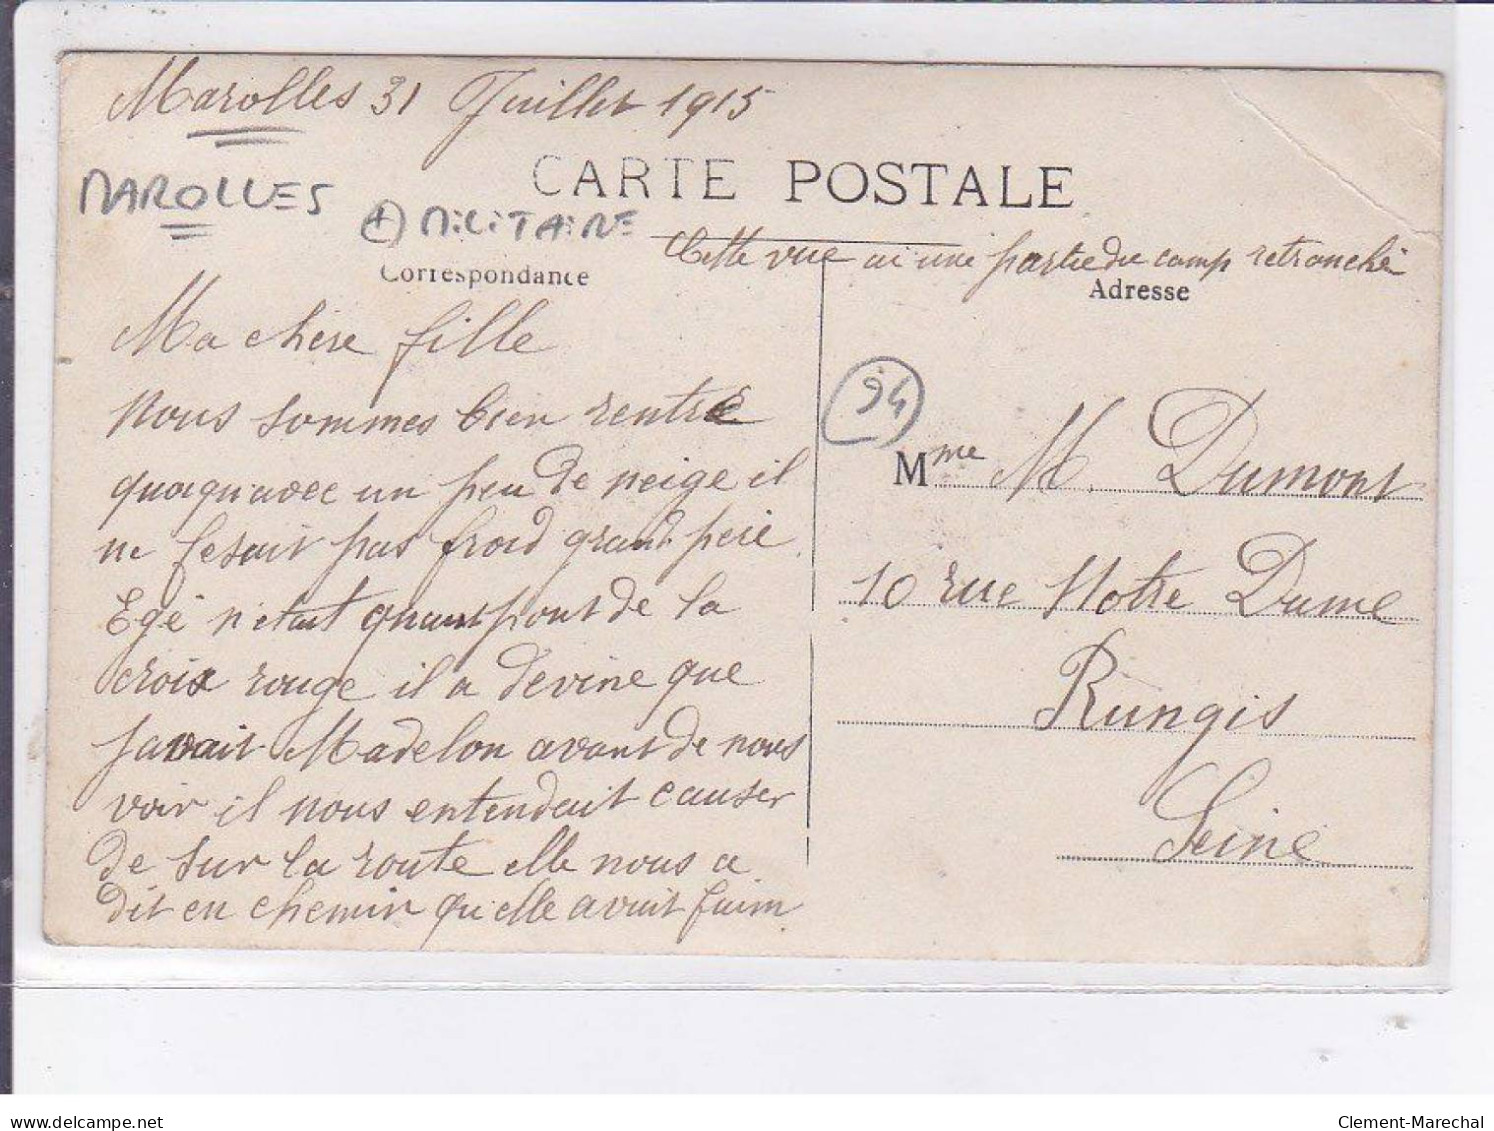 Marolles 31 Juillet 1915
MAROLLES
+ MILITAIRE
CARTE POSTALE
Cette vue ai une partie du camp retranché
Correspondance
Adresse
Ma chere fille
Nous sommes bien rentré
quoiqu'avec un peu de neige il
ne fesait pas froid grand pere
Egé n'etait quant pont de la
croix rouge il a devine que
javait Madelon avant de nous
voir il nous entendait causer
de sur la route elle nous a
dit en chemin qu'elle avait faim
94
Mme M. Dumont
10 rue Notre Dame
Rungis
Seine
delcampe.net
Clement-Marechal